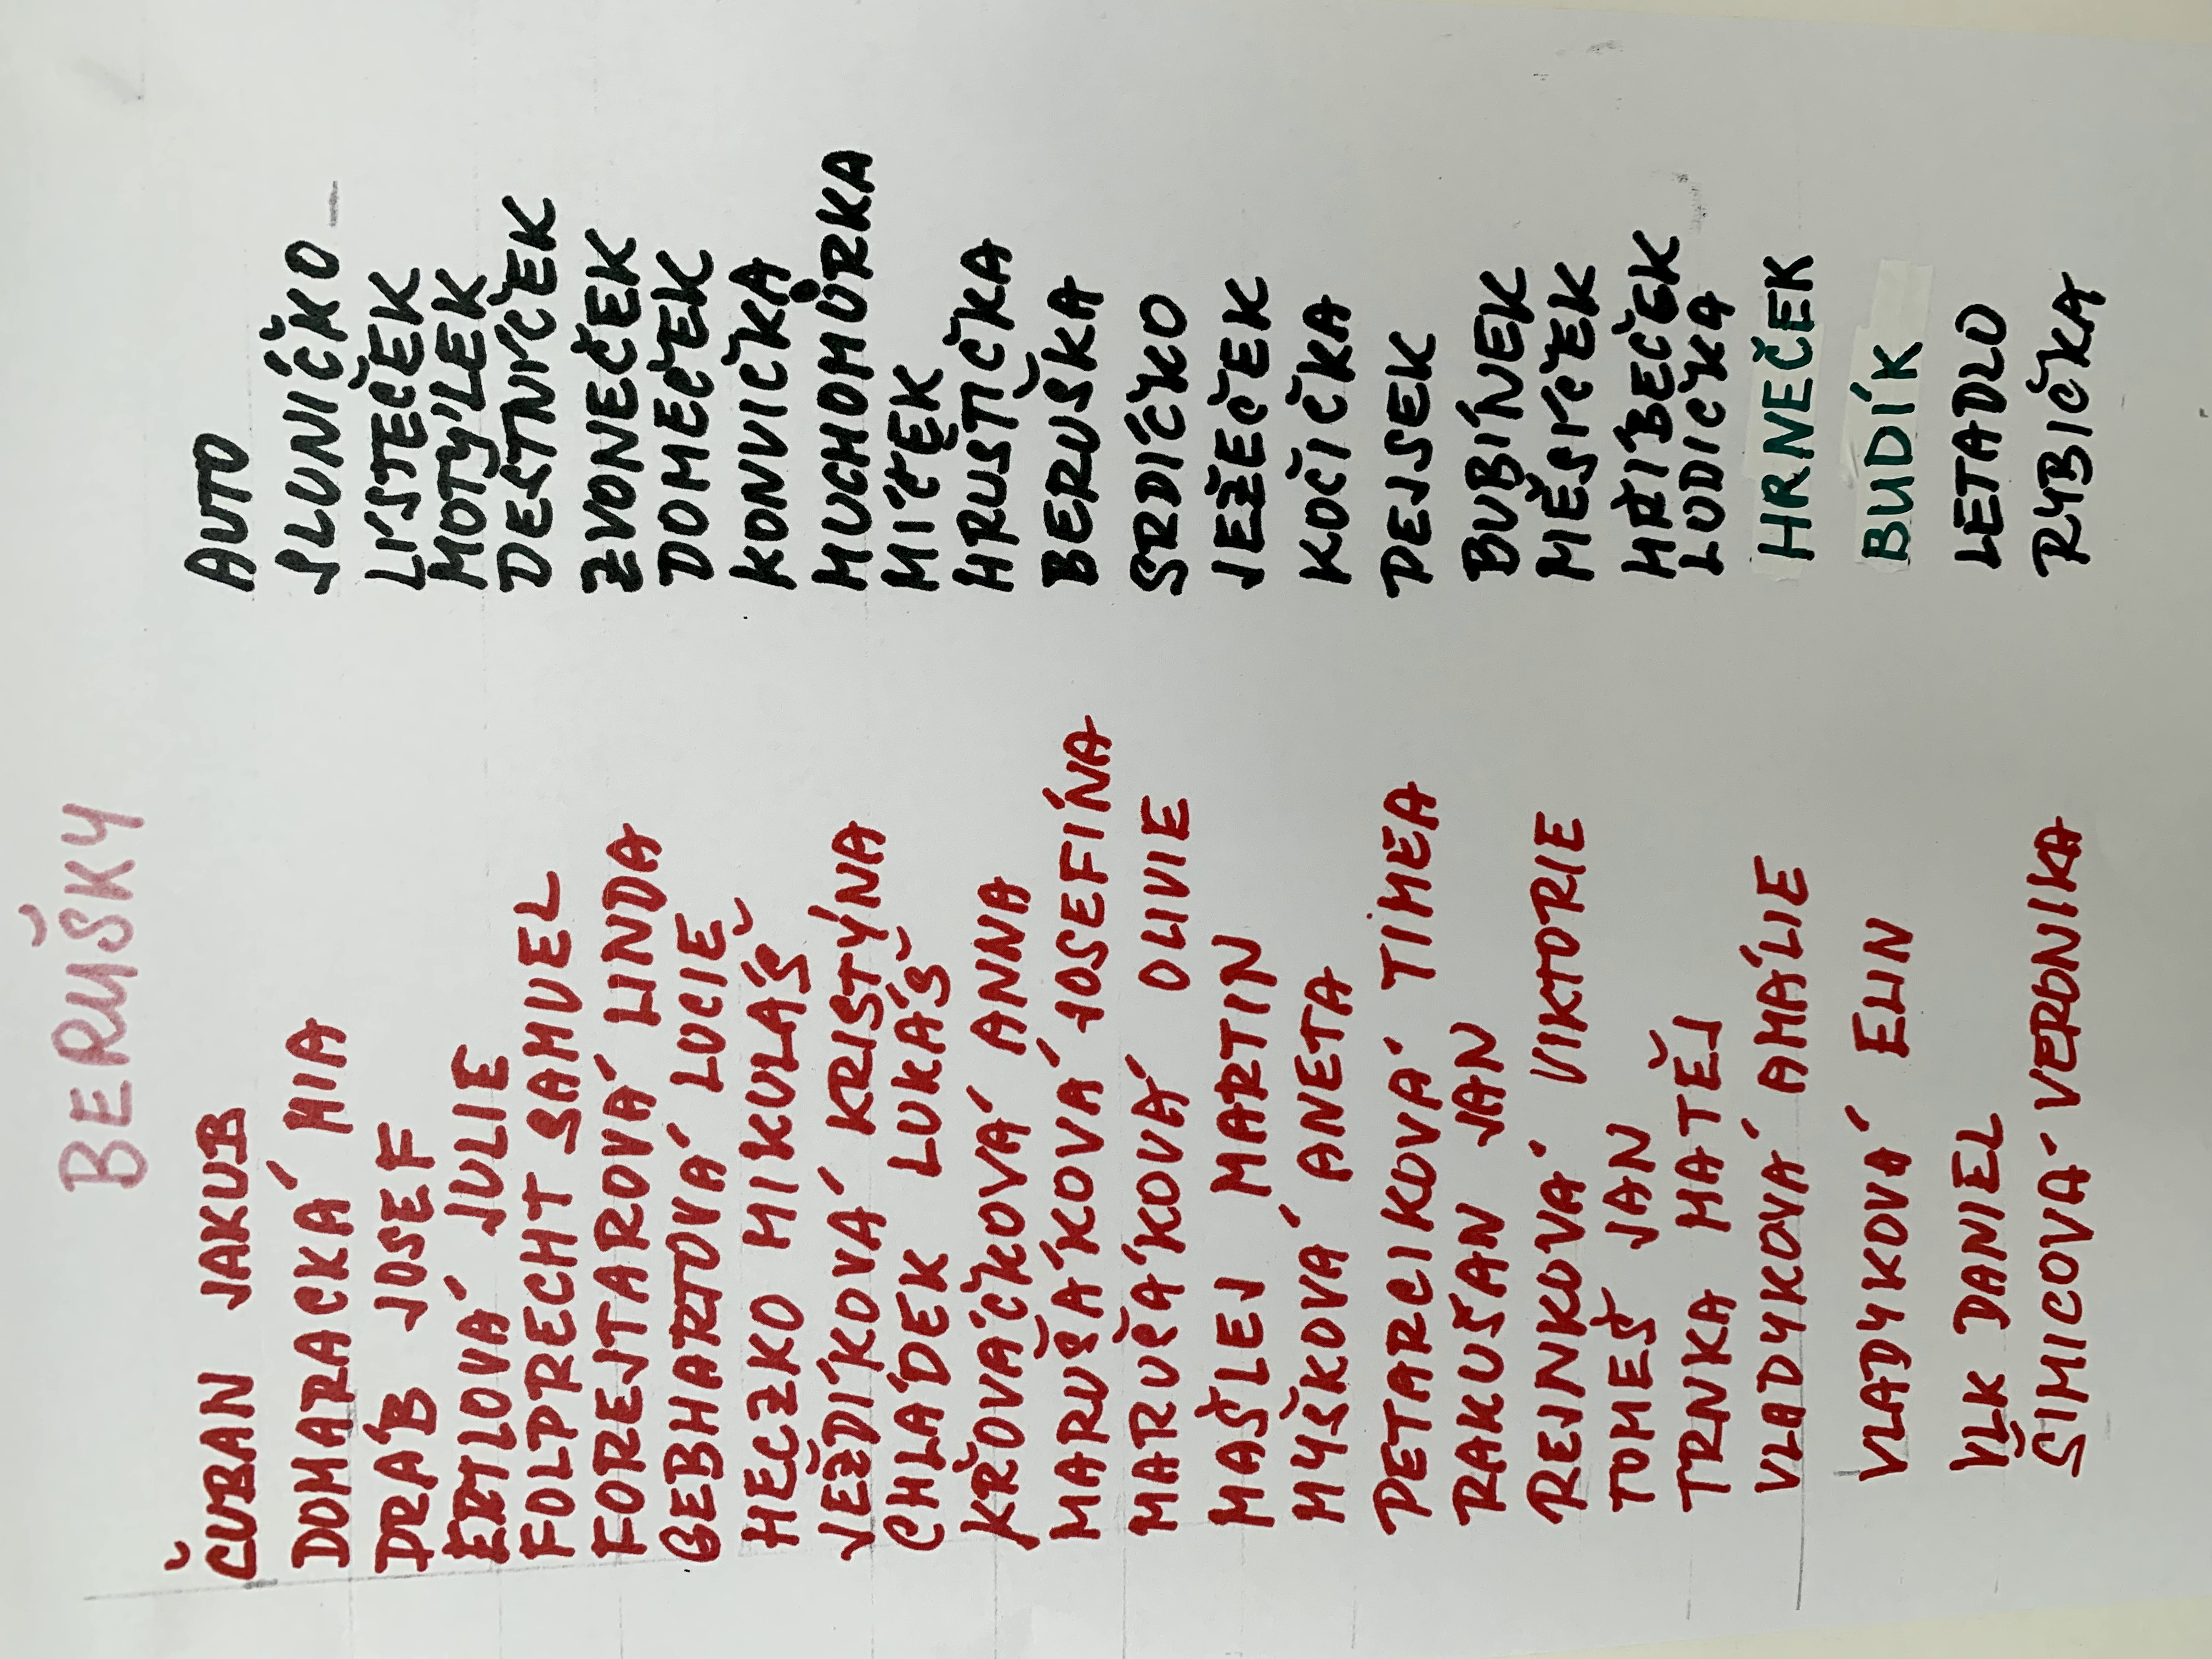 BERUŠKY
ČUBAN JAKUB AUTO
DOMARACKÁ MIA SLUNÍČKO
DRÁB JOSEF LÍSTEČEK
ERTLOVÁ JULIE MOTÝLEK
FOLPRECHT SAMUEL DEŠTNÍČEK
FOREJTAROVÁ LINDA ZVONEČEK
GEBHARTOVÁ LUCIE DOMEČEK
HECZKO MIKULÁŠ KONVIČKA
JEŽDÍKOVÁ KRISTÝNA MUCHOMŮRKA
CHLÁDEK LUKÁŠ MÍČEK
KŘOVÁČKOVÁ ANNA HRUŠTIČKA
MARUŠÁKOVÁ JOSEFÍNA BERUŠKA
MARUŠÁKOVÁ OLIVIE SRDÍČKO
MAŠLEJ MARTIN JEŽEČEK
MYŠKOVÁ ANETA KOČIČKA
PETARCIKOVÁ TIMEA PEJSEK
RAKUŠAN JAN BUBÍNEK
REJNKOVÁ VIKTORIE MĚSÍČEK
TOMEŠ JAN HŘÍBEČEK
TRNKA MATĚJ LODIČKA
VLADYKOVÁ AMÁLIE HRNEČEK
VLADYKOVÁ ELIN BUDÍK
VLK DANIEL LETADLO
ŠIMICOVA VERONIKA RYBIČKA